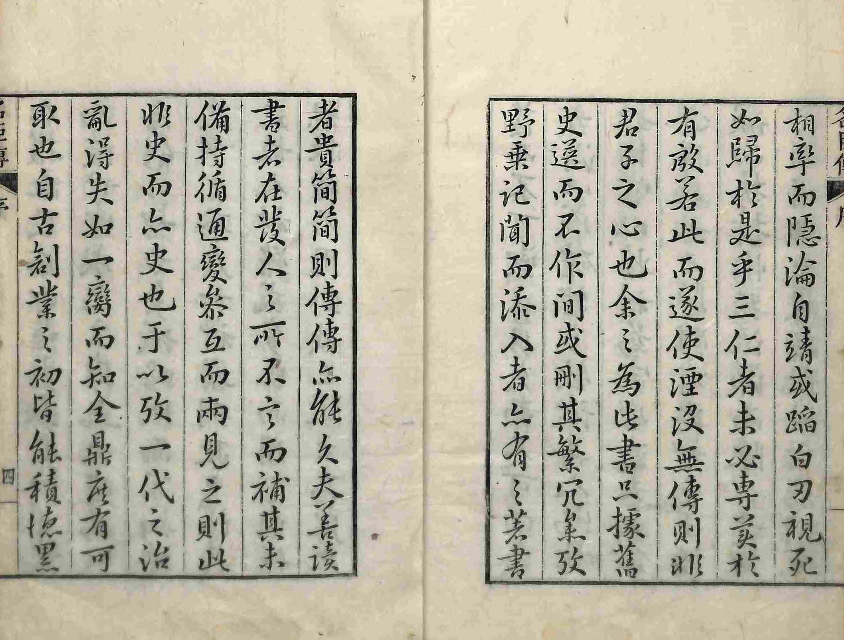 相率而隱淪自靖或蹈白刃視死
如歸於是乎三仁者未必專美於
有殷若此而遂使湮沒無傳則非
君子之心也余之為此書只據舊
史選而不作间或刪其繁冗參攷
野乘記聞而添入者亦有之著書
者貴簡簡則傳傳亦能久夫善读
書者在發人之所不言而補其未
備持循通變參互而兩見之則此
非史而亦史也于以攷一代之治
亂得失如一臠而知全鼎庶有可
取也自古創業之初皆能積德累
四